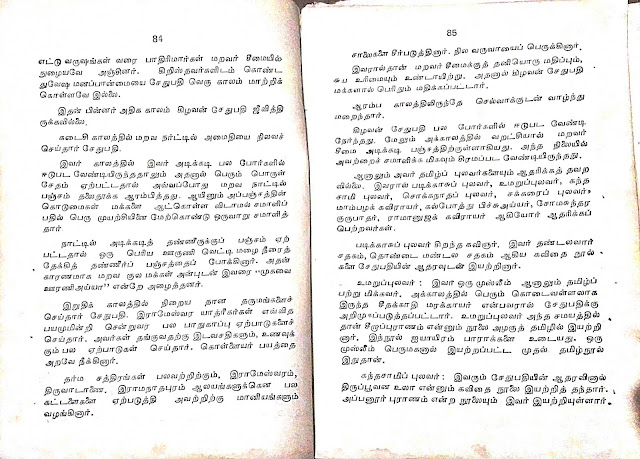 84
எட்டு வருஷங்கள் வரை பாதிரிமார்கள் மறவர் சீமையில்
நுழையவே அஞ்சினர். கிறிஸ்தவர்களிடம் கொண்ட
துவேஷ மனப்பான்மையை சேதுபதி வெகு காலம் மாற்றிக்
கொள்ளவே இல்லை.
இதன் பின்னர் அதிக காலம் கிழவன் சேதுபதி ஜீவித்தி
ருக்கவில்லை.
கடைசி காலத்தில் மறவ நாட்டில் அமைதியை நிலவச்
செய்தார் சேதுபதி.
இவர் காலத்தில் இவர் அடிக்கடி பல போர்களில்
ஈடுபட வேண்டியிருந்ததாலும் அதனால் பெரும் பொருள்
சேதம் ஏற்பட்டதால் அவ்வப்போது மறவ நாட்டில்
பஞ்சம் தலைதூக்க ஆரம்பித்தது. ஆயினும் அப்பஞ்சத்தின்
கொடுமைகள் மக்களை ஆட்கொள்ள விடாமல் சமாளிப்
பதில் பெரு முயற்சியினை மேற்கொண்டு ஒருவாறு சமாளித்
தார்
நாட்டில் அடிக்கடித் தண்ணீருக்குப் பஞ்சம் ஏற்
பட்டதால் ஒரு பெரிய ஊருணி வெட்டி மழை நீரைத்
தேக்கித் தண்ணீர்ப் பஞ்சத்தைப் போக்கினார். அதன்
காரணமாக மறவ குல மக்கள் அன்புடன் இவரை “முகவை
ஊரணிஅய்யா” என்றே அழைத்தனர்.
இறுதிக் காலத்தில் நிறைய தான தருமங்களைச்
செய்தார் சேதுபதி. இராமேஸ்வர யாத்ரீகர்கள் எவ்வித
பயமுமின்றி சென்றுவர பல பாதுகாப்பு ஏற்பாடுகளைச்
செய்தார். அவர்கள் தங்குவதற்கு இடவசதிகளும், உணவுக்
கும் பல ஏற்பாடுகள் செய்தார். கொள்ளையர் பயத்தை
அறவே நீக்கினார்.
தர்ம சத்திரங்கள் பலவற்றிற்கும், இராமேஸ்வரம்,
திருவாடானை. இராமநாதபுரம் ஆலயங்களுக்கென பல
கட்டளைகளை ஏற்படுத்தி அவற்றிற்கு மானியங்களும்
வழங்கினார்.
85
சாலைகளை சீர்படுத்தினார். நில வருவாயைப் பெருக்கினார்.
இவரால்தான் மறவர் சீமைக்குத் தனியொரு மதிப்பும்,
சுய உரிமையும் உண்டாயிற்று. அதனால் கிழவன் சேதுபதி
மக்களால் பெரிதும் மதிக்கப்பட்டார்.
ஆரம்ப காலத்திலிருந்தே செல்வாக்குடன் வாழ்ந்து
மறைந்தார்.
கிழவன் சேதுபதி பல போர்களில் ஈடுபட வேண்டி
நேர்ந்தது. மேலும் அக்காலத்தில் வறட்சியால் மறவர்
சீமை அடிக்கடி பஞ்சத்திற்குள்ளாகியது. அந்த நிலையில்
அவற்றைச் சமாளிக்க மிகவும் சிரமப்பட வேண்டியிருந்தது.
ஆனாலும் அவர் தமிழ்ப் புலவர்களையும் ஆதரிக்கத் தவற
வில்லை. இவரால் படிக்காசுப் புலவர், உமறுப்புலவர், கந்த
சாமி புலவர், சொக்கநாதப் புலவர், சக்கரைப் புலவர்,
மாம்பழக் கவிராயர், கல்போது பிச்சுஅய்யர், சோமசுந்தர
குருபாதர், ராமானுஜக் கவிராயர் ஆகியோர் ஆதரிக்கப்
பெற்றவர்கள்.
படிக்காசுப் புலவர் சிறந்த கவிஞர். இவர் தண்டலையார்
சதகம், தொண்டை மண்டல சதகம் ஆகிய கவிதை நூல்
களை சேதுபதியின் ஆதரவுடன் இயற்றினார்.
உமறுப்புலவர் : இவர் ஒரு முஸ்லீம் ஆனாலும் தமிழ்ப்
பற்று மிக்கவர், அக்காலத்தில் பெரும் கொடைவள்ளலாக
இருந்த சீதக்காதி மரக்காயர் என்பவரால் சேதுபதிக்கு
அறிமுகப்படுத்தப்பட்டார். உமறுப்புலவர் அந்த சமயத்தில்
தான் சீறாப்புராணம் என்னும் நூலை அழகுத் தமிழில் இயற்றி
னார். இந்நூல் ஐயாயிரம் பாராக்களை உடையது. ஒரு
முஸ்லீம் பெருமகனால் இயற்றப்பட்ட முதல் தமிழ்நூல்
இதுதான்.
கந்தசாமிப் புலவர் : இவரும் சேதுபதியின் ஆதரவினால்
திருப்பூவன உலா என்னும் கவிதை நூலை இயற்றித் தந்தார்.
அப்பனூர் புராணம் என்ற நூலையும் இவர் இயற்றியுள்ளார்.